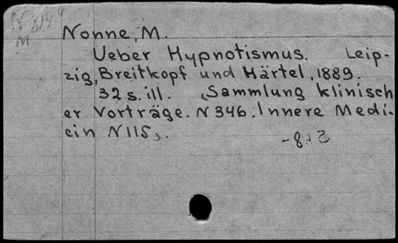 Nonne, M.
Ueber Hypnotismus. Leip-
zig, Breitkopf und Härtel, 1889.
32 s. ill. (Sammlung klinisch
er Vorträge. N 346. Innere Medi-
cin N 115).